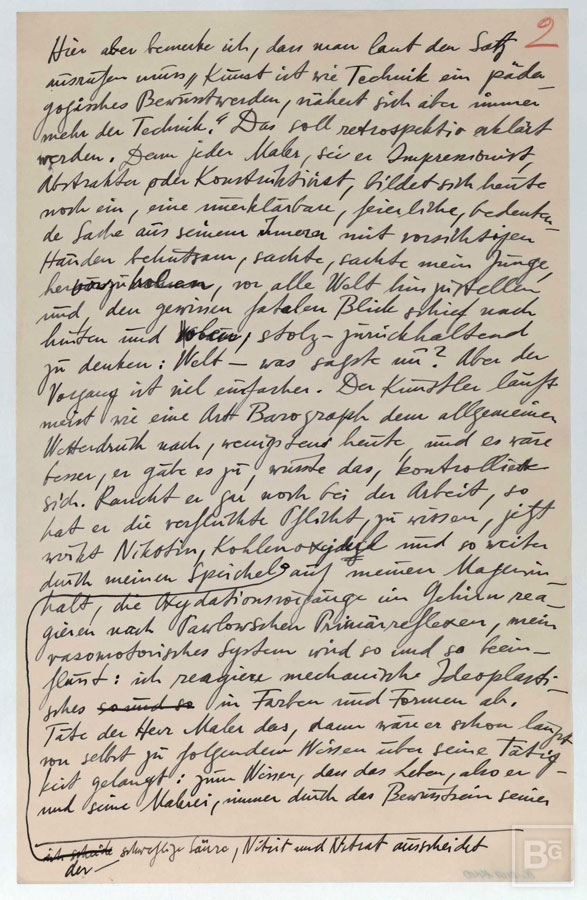 2
Hier aber bemerke ich, dass man laut den Satz
ausrufen muss „Kunst ist wie Technik ein päda-
gogisches Bewusstwerden, nähert sich aber immer
mehr der Technik.“ Das soll retrospektiv erklärt
werden. Denn jeder Maler, sei er Impressionist,
Abstrakter oder Konstruktivist, bildet sich heute
noch ein, eine unerklärbare, feierliche, bedeuten-
de Sache aus seinem Innern mit vorsichtigen
Händen behutsam, sachte, sachte mein Junge,
hervorzuholen, vor alle Welt hinzustellen
und, den gewissen fatalen Blick schief nach
hinten und oben, stolz-zurückhaltend
zu denken: Welt — was sagste nu? Aber der
Vorgang ist viel einfacher. Der Künstler läuft
meist wie eine Art Barograph dem allgemeinen
Wetterdruck nach, wenigstens heute, und es wäre
besser, er gäbe es zu, wüsste das, kontrollierte
sich. Raucht er gar noch bei der Arbeit, so
hat er die verfluchte Pflicht, zu wissen, jetzt
wirkt Nikotin, Kohlenoxyd und so weiter
durch meinen Speichel auf meinen Magenin-
halt, die Oxydationsvorgänge im Gehirn rea-
gieren nach Pawlowschen Primärreflexen, mein
vasomotorisches System wird so und so beein-
flusst: ich reagiere mechanische Ideoplasti-
sches so und so in Farben und Formen ab.
Täte der Herr Maler das, dann wäre er schon längst
von selbst zu folgendem Wissen über seine Tätig-
keit gelangt: zum Wissen, dass das Leben, also er
und seine Malerei, immer durch das Bewusstsein seiner
ich scheide schweflige Säure, Nitrit und Nitrat ausscheidet
der
BG